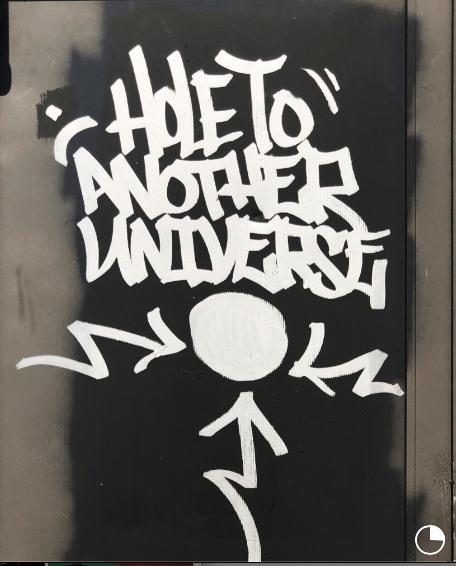 HOLE TO
ANOTHER
UNIVERSE